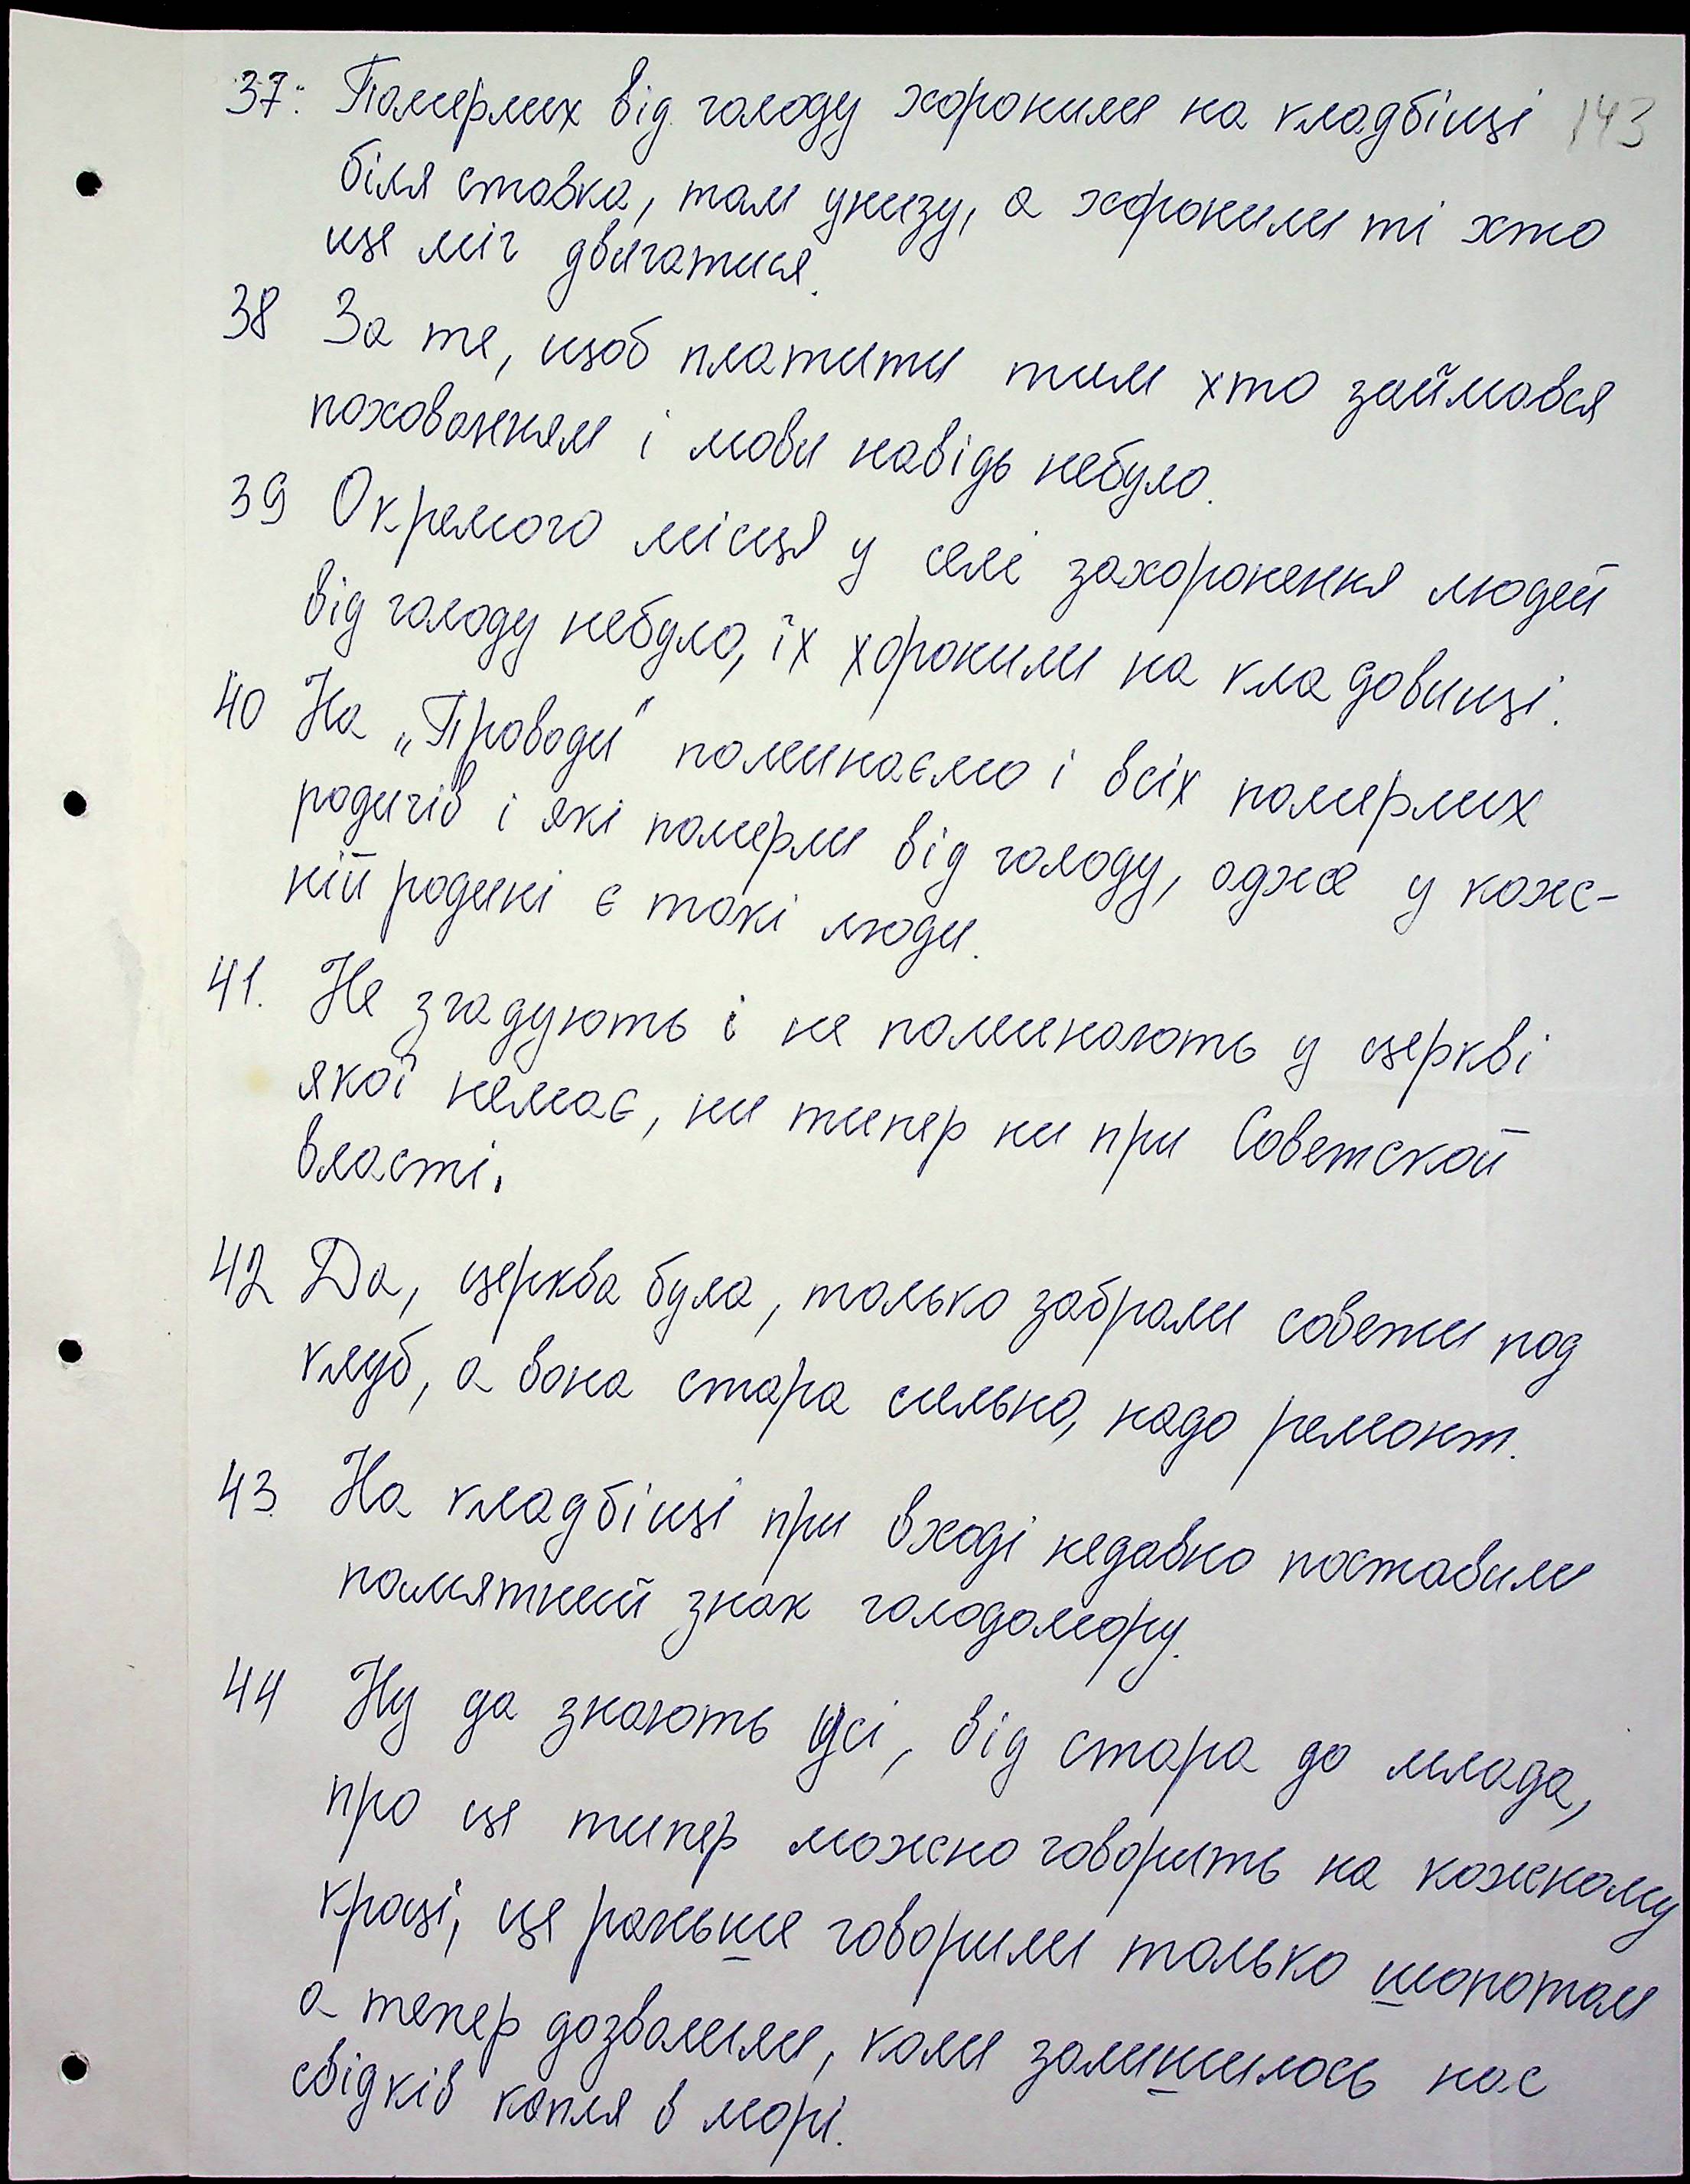 37. Памерлих від голоду хоронили на кладбіщі 143
біля ставка, там унизу, а хоронили ті хто
ще міг двигатися.
38 За те, щоб платити тим хто займався
похованням і мови навідь небуло.
39 Окремого місця у селі захоронення людей
від голоду небуло, їх хоронили на кладовищі.
40 На „Проводи" поминаємо і всіх померлих
родичів і які померли від голоду, адже у кож-
ній родині є такі люди.
41. Не згадують і не поминають у церкві
якої немає, ни типер ни при Советской
власті.
42 Да, церква була, только забрали совети под
клуб, а вона стара сильно, надо ремонт.
43. На кладбіщі при вході недавно поставили
памятний знак голодомору.
44 Ну да знають усі, від стара до млада,
про це типер можно говорить на кожному
краці, це раньше говорили только шопотом
а тепер дозволили, коли залишилось нас
свідків капля в морі.